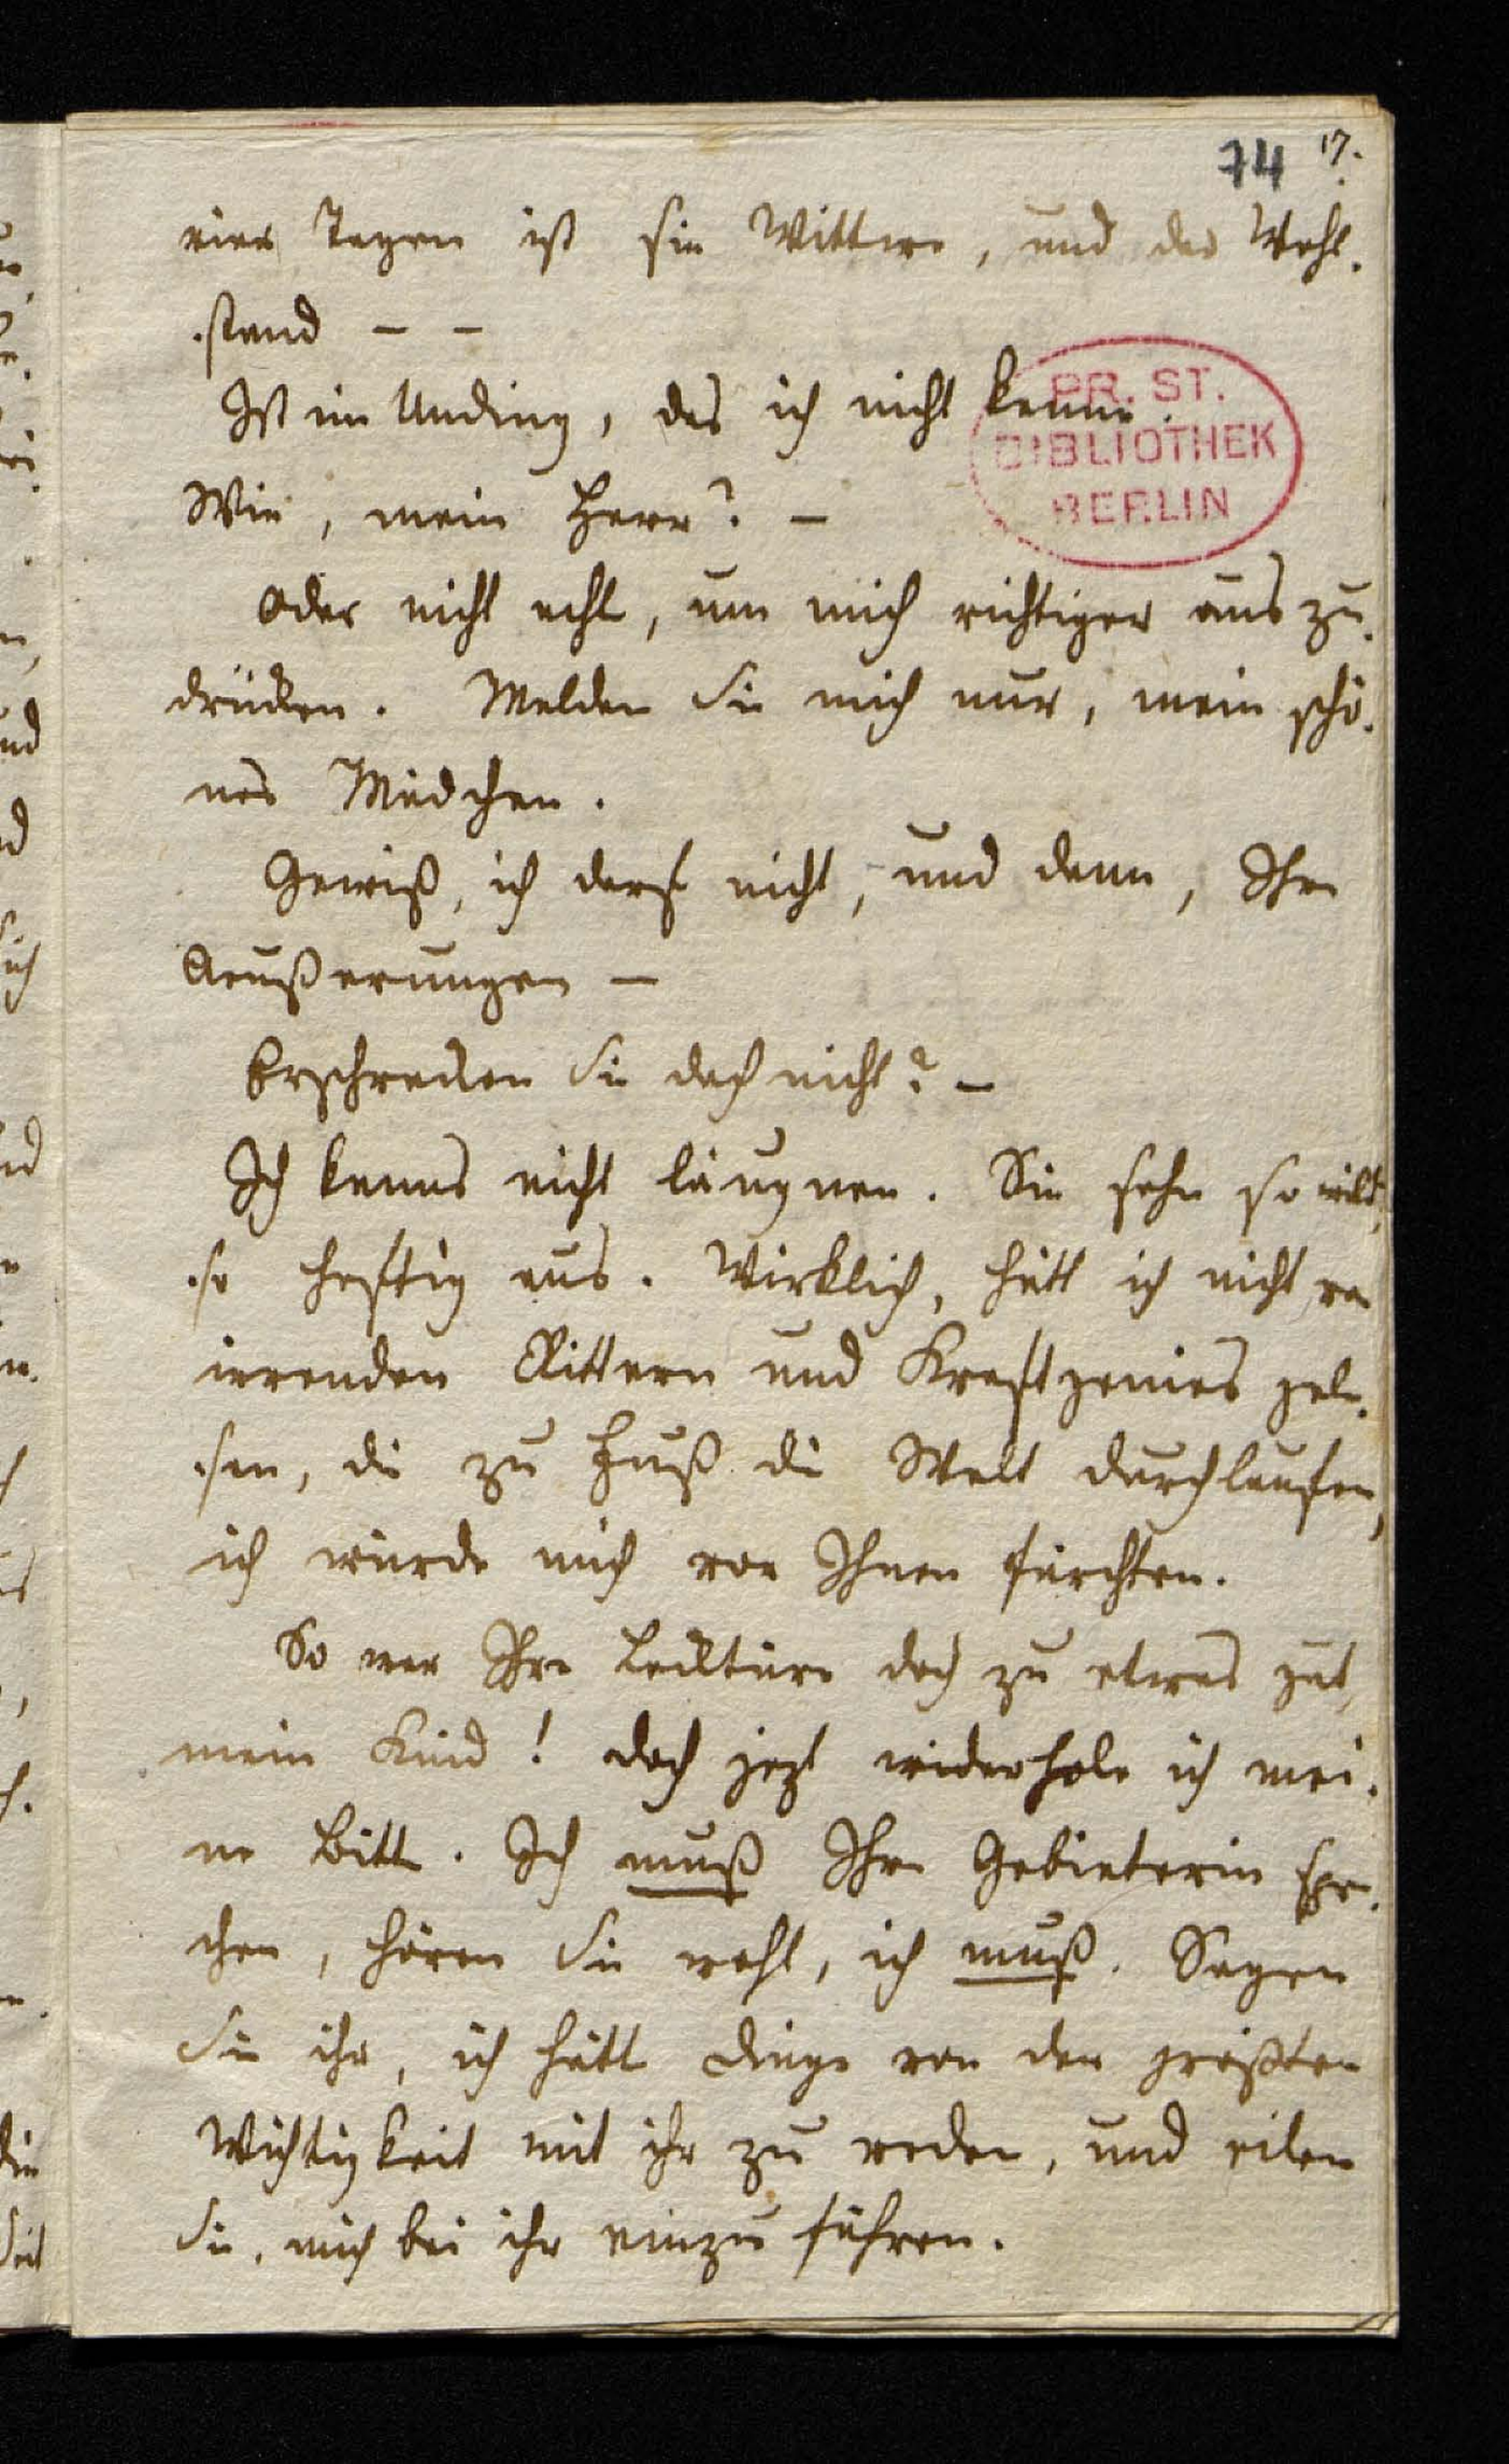 74 17.
vier Tagen ist sie Wittwe, und der Wohl-
-stand – –
Ist ein Unding, das ich nicht kenne.
PR. ST.
BIBLIOTHEK
BERLIN
Wie, mein Herr? –
Oder nicht acht, um mich richtiger aus zu-
drücken. Melden Sie mich nur, mein schö-
nes Mädchen.
Gewiß, ich darf nicht, und dann, Ihre
Aeußerungen –
Erschrecken Sie doch nicht? –
Ich kanns nicht läugnen. Sie sehn so wild,
so heftig aus. Wirklich, hätt ich nicht von
irrenden Rittern und Kraftgenies gele-
-sen, die zu Fuß die Welt durchlaufen,
ich würde mich vor Ihnen fürchten.
So war Ihre Lecktüre doch zu etwas gut,
mein Kind! doch jezt wiederhole ich mei-
ne Bitte. Ich muß Ihre Gebieterin spre-
chen, hören Sie wohl, ich muß. Sagen
Sie ihr, ich hätte Dinge von der größten
Wichtigkeit mit ihr zu reden, und eilen
Sie, mich bei ihr einzuführen.